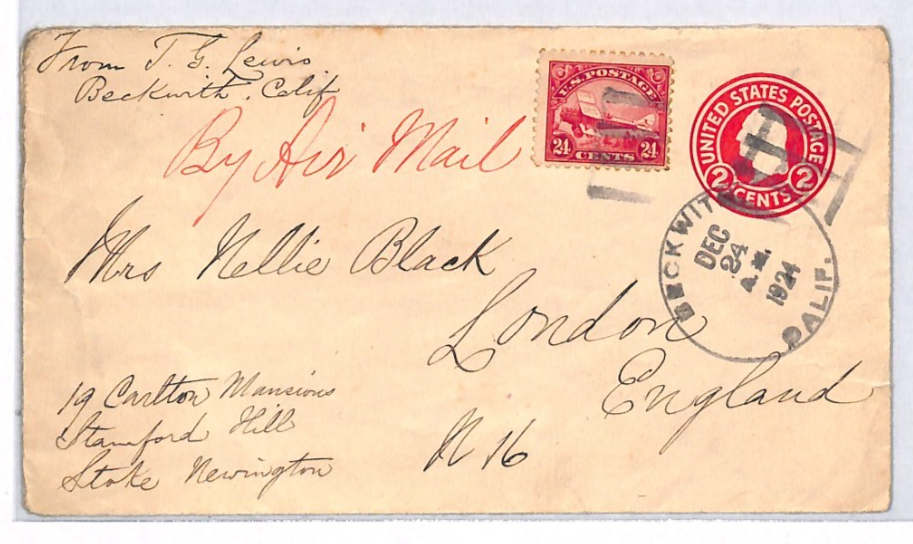 From T. G. Lewis
Beckwith, Calif
By Air Mail
U.S. POSTAGE
24 CENTS 24
UNITED STATES POSTAGE
2 CENTS 2
BECKWITH
DEC
24
A.M.
1924
CALIF.
Mrs Nellie Black
London
England
N 16
19 Carlton Mansions
Stamford Hill
Stoke Newington